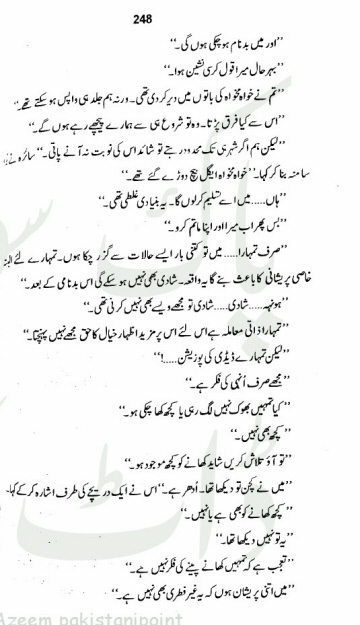 248
”اور میں بدنام ہو چکی ہوں گی۔“
”بہر حال میرا قول کرسی نشین ہوا۔“
”تم نے خواہ مخواہ کی باتوں میں دیر کر دی تھی۔ ورنہ ہم جلد ہی واپس ہو سکتے تھے۔“
”اس سے کیا فرق پڑتا۔ وہ تو شروع ہی سے ہمارے پیچھے رہے ہوں گے۔“
”لیکن ہم اگر شہر ہی تک محدود رہتے تو شائد اس کی نوبت نہ آنے پاتی۔“ سائرہ نے
سامنہ بنا کر کہا۔ ”خواہ مخواہ ایگل بیچ دوڑے گئے تھے۔“
”ہاں..... میں اسے تسلیم کر لوں گا۔ یہ بنیادی غلطی تھی۔“
”بس پھر اب میرا اور اپنا ماتم کرو۔“
”صرف تمہارا..... میں تو کتنی بار ایسے حالات سے گزر چکا ہوں۔ تمہارے لئے البتہ
خاصی پریشانی کا باعث بنے گا یہ واقعہ۔ شادی بھی نہیں ہو سکے گی اس بدنامی کے بعد۔“
”ہونہہ..... شادی..... شادی تو مجھے ویسے بھی نہیں کرنی تھی۔“
”تمہارا ذاتی معاملہ ہے اس لئے اس پر مزید اظہار خیال کا حق مجھے نہیں پہنچتا۔“
”لیکن تمہارے ڈیڈی کی پوزیشن.....!“
”مجھے صرف اُنہی کی فکر ہے۔“
”کیا تمہیں بھوک نہیں لگ رہی یا کچھ کھا چکی ہو۔“
”کچھ بھی نہیں۔“
”تو آؤ تلاش کریں شاید کھانے کو کچھ موجود ہو۔“
”میں نے کچن تو دیکھا تھا۔ اُدھر ہے۔“ اس نے ایک دریچے کی طرف اشارہ کر کے کہا۔
”کچھ کھانے کو بھی ہے یا نہیں۔“
”یہ تو نہیں دیکھا تھا۔“
”تعجب ہے کہ تمہیں کھانے پینے کی فکر نہیں ہے۔“
”میں اتنی پریشان ہوں کہ یہ غیر فطری بھی نہیں ہے۔“
Azeem pakistanipoint